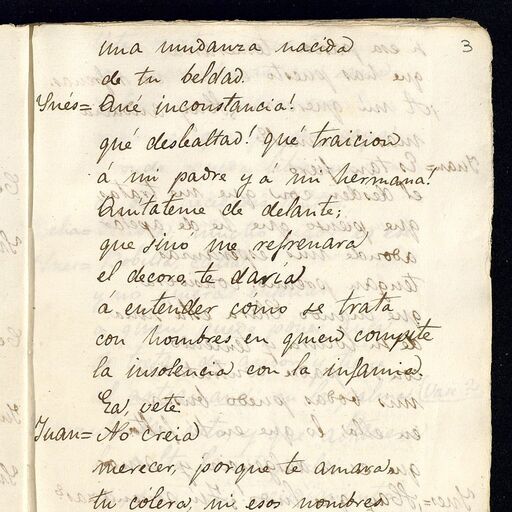 3
una mudanza nacida
de tu beldad.
Ynés= Que inconstancia!
qué deslealtad! qué traicion
á mi padre y á mi hermana!
Quitateme de delante;
que sino me refrenara
el decoro, te daría
á entender cómo se trata
con hombres en quien compite
la insolencia con la infamia.
Ea, vete.
Juan= No creia
merecer, porque te amara,
tu cólera, ni esos nombres